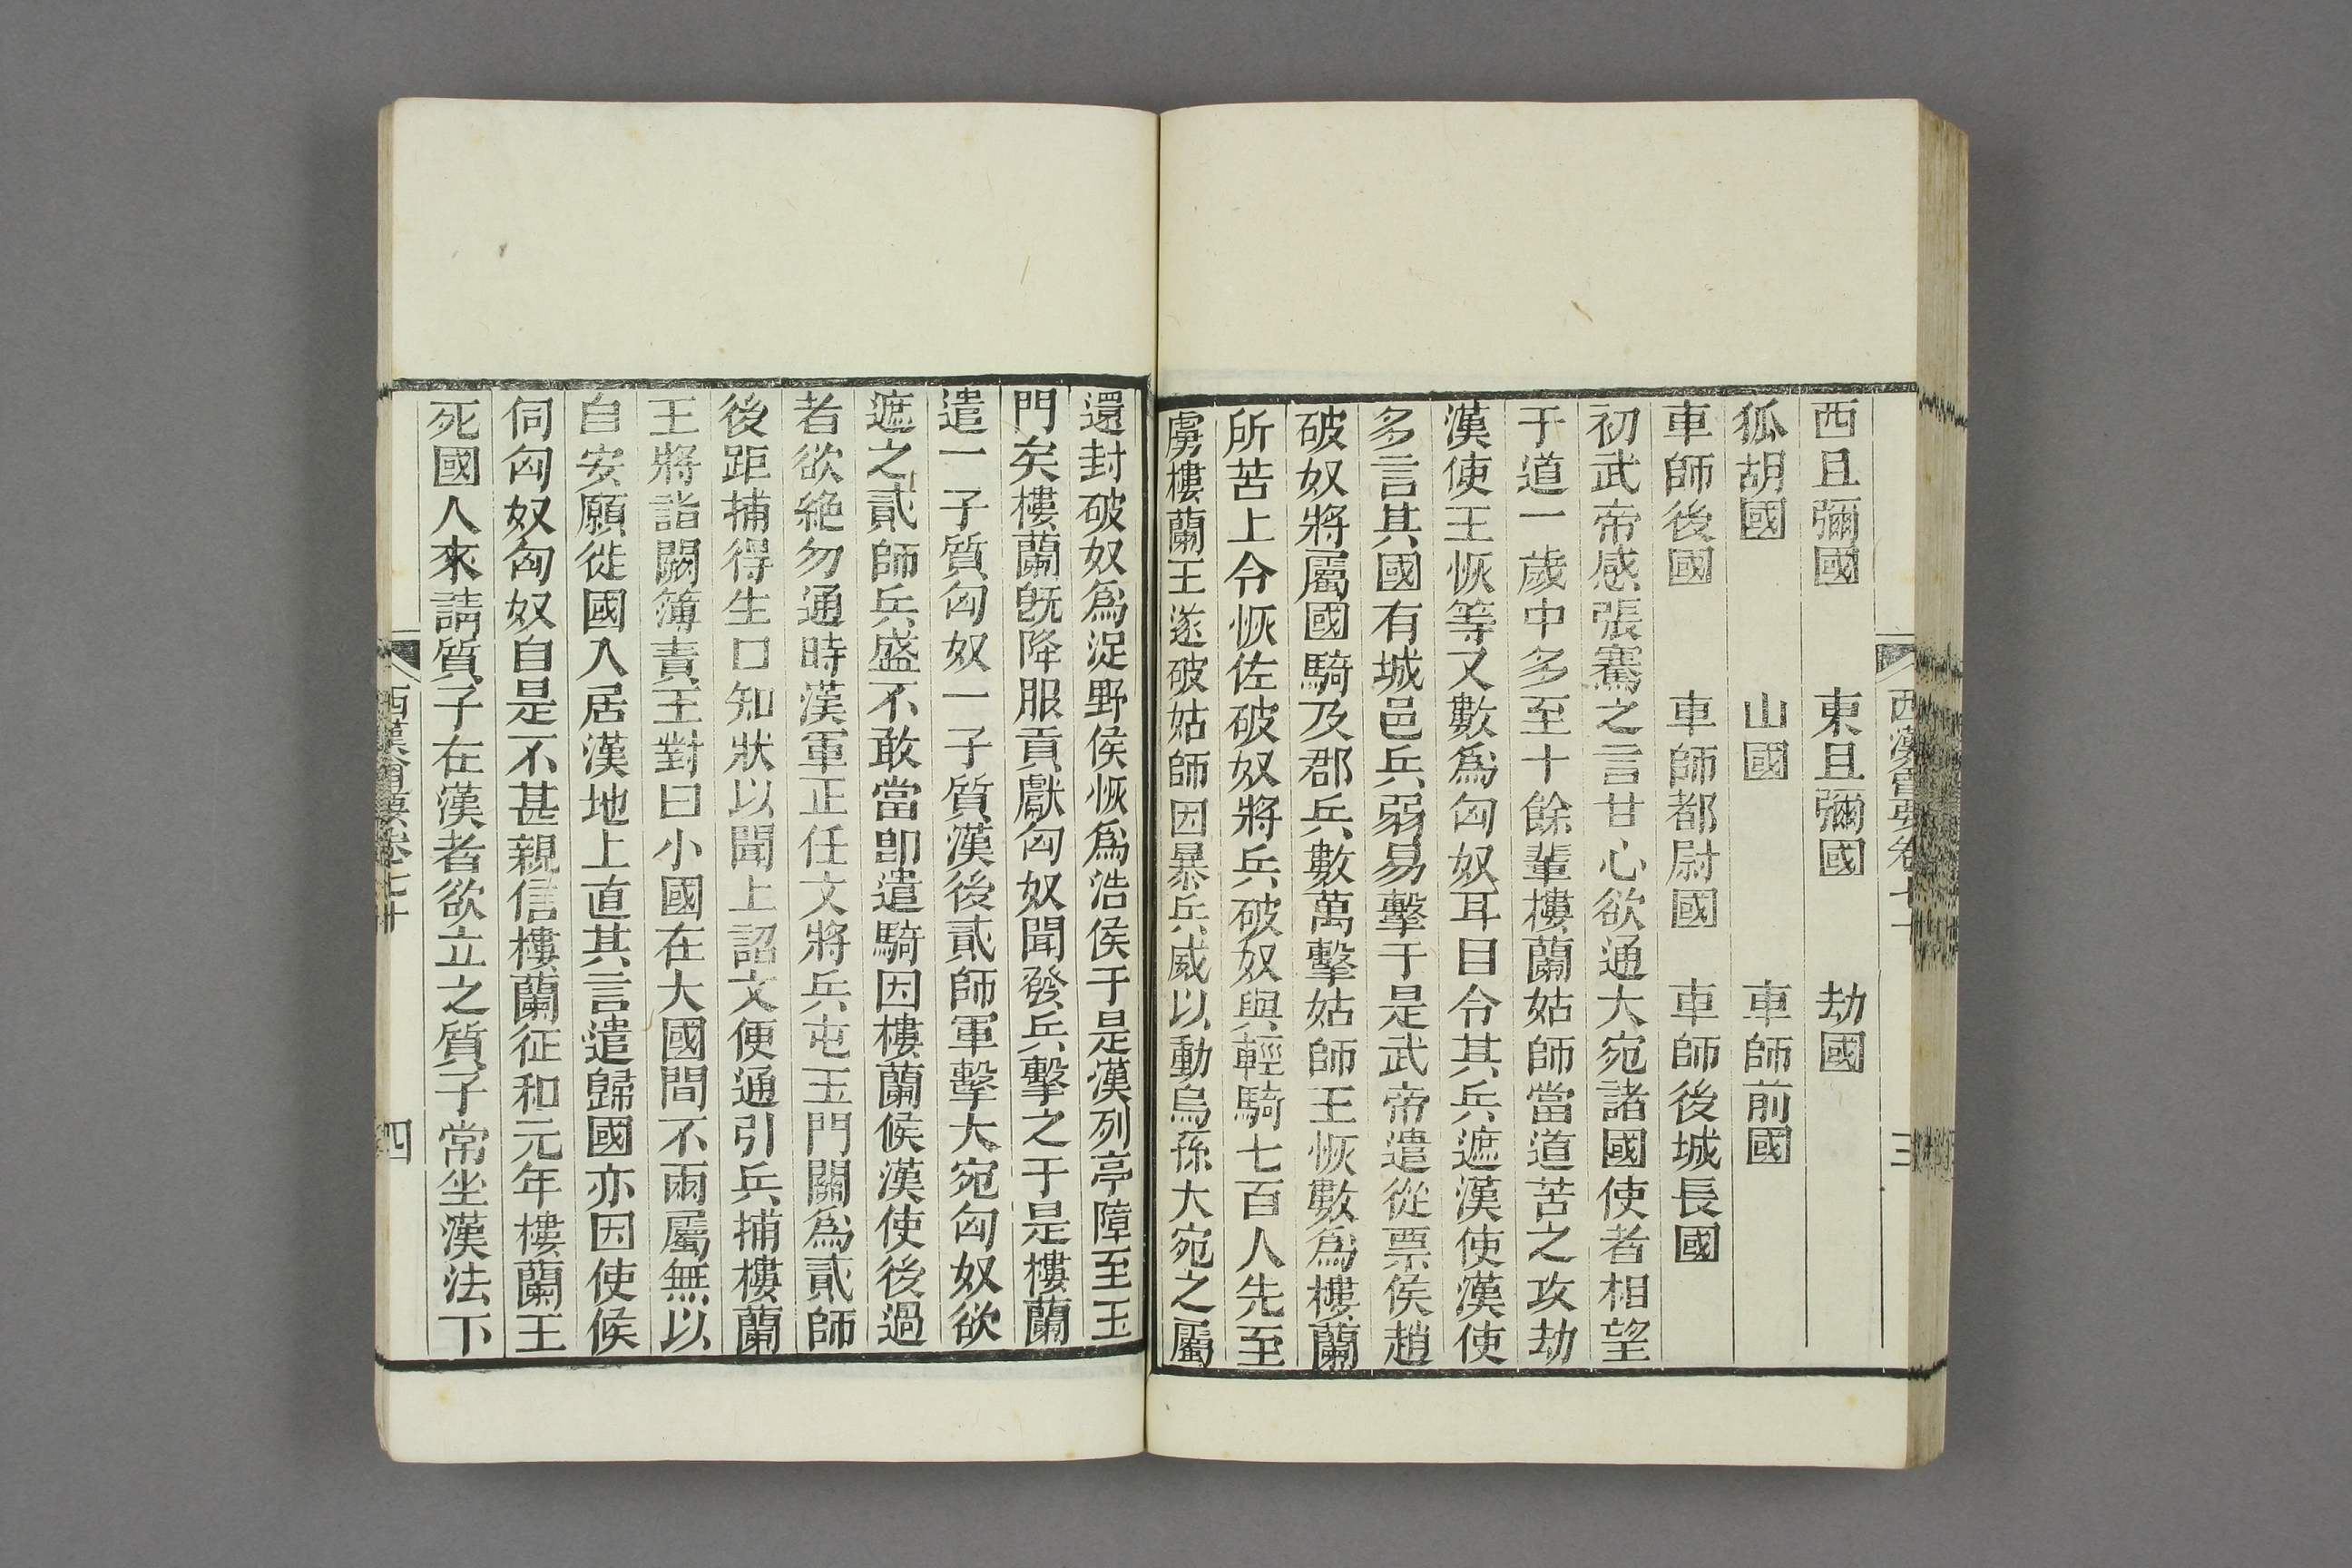 西漢會要卷七十
三
西且彌國 東且彌國 劫國
狐胡國 山國 車師前國
車師後國 車師都尉國 車師後城長國
初武帝感張騫之言甘心欲通大宛諸國使者相望
于道一歲中多至十餘輩樓蘭姑師當道苦之攻劫
漢使王恢等又數爲匈奴耳目令其兵遮漢使漢使
多言其國有城邑兵弱易擊于是武帝遣從票侯趙
破奴將屬國騎及郡兵數萬擊姑師王恢數爲樓蘭
所苦上令恢佐破奴將兵破奴與輕騎七百人先至
虜樓蘭王遂破姑師因暴兵威以動烏孫大宛之屬
還封破奴爲浞野侯恢爲浩侯于是漢列亭障至玉
門矣樓蘭旣降服貢獻匈奴聞發兵擊之于是樓蘭
遣一子質匈奴一子質漢後貳師軍擊大宛匈奴欲
遮之貳師兵盛不敢當卽遣騎因樓蘭候漢使後過
者欲絶勿通時漢軍正任文將兵屯玉門關爲貳師
後距捕得生口知狀以聞上詔文便通引兵捕樓蘭
王將詣闕簿責王對曰小國在大國間不兩屬無以
自安願徙國入居漢地上直其言遣歸國亦因使候
伺匈奴匈奴自是不甚親信樓蘭征和元年樓蘭王
死國人來請質子在漢者欲立之質子常坐漢法下
西漢會要卷七十
四